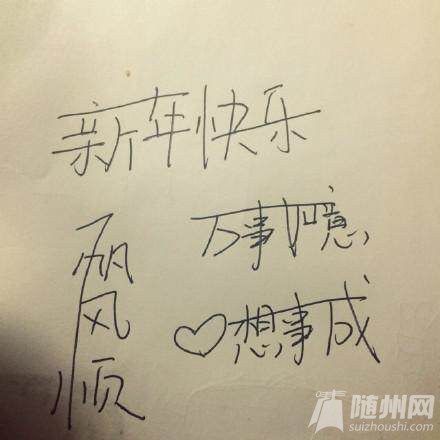 新年快乐
一帆风顺
万事如意
♡想事成
随州网
suizhoushi.com